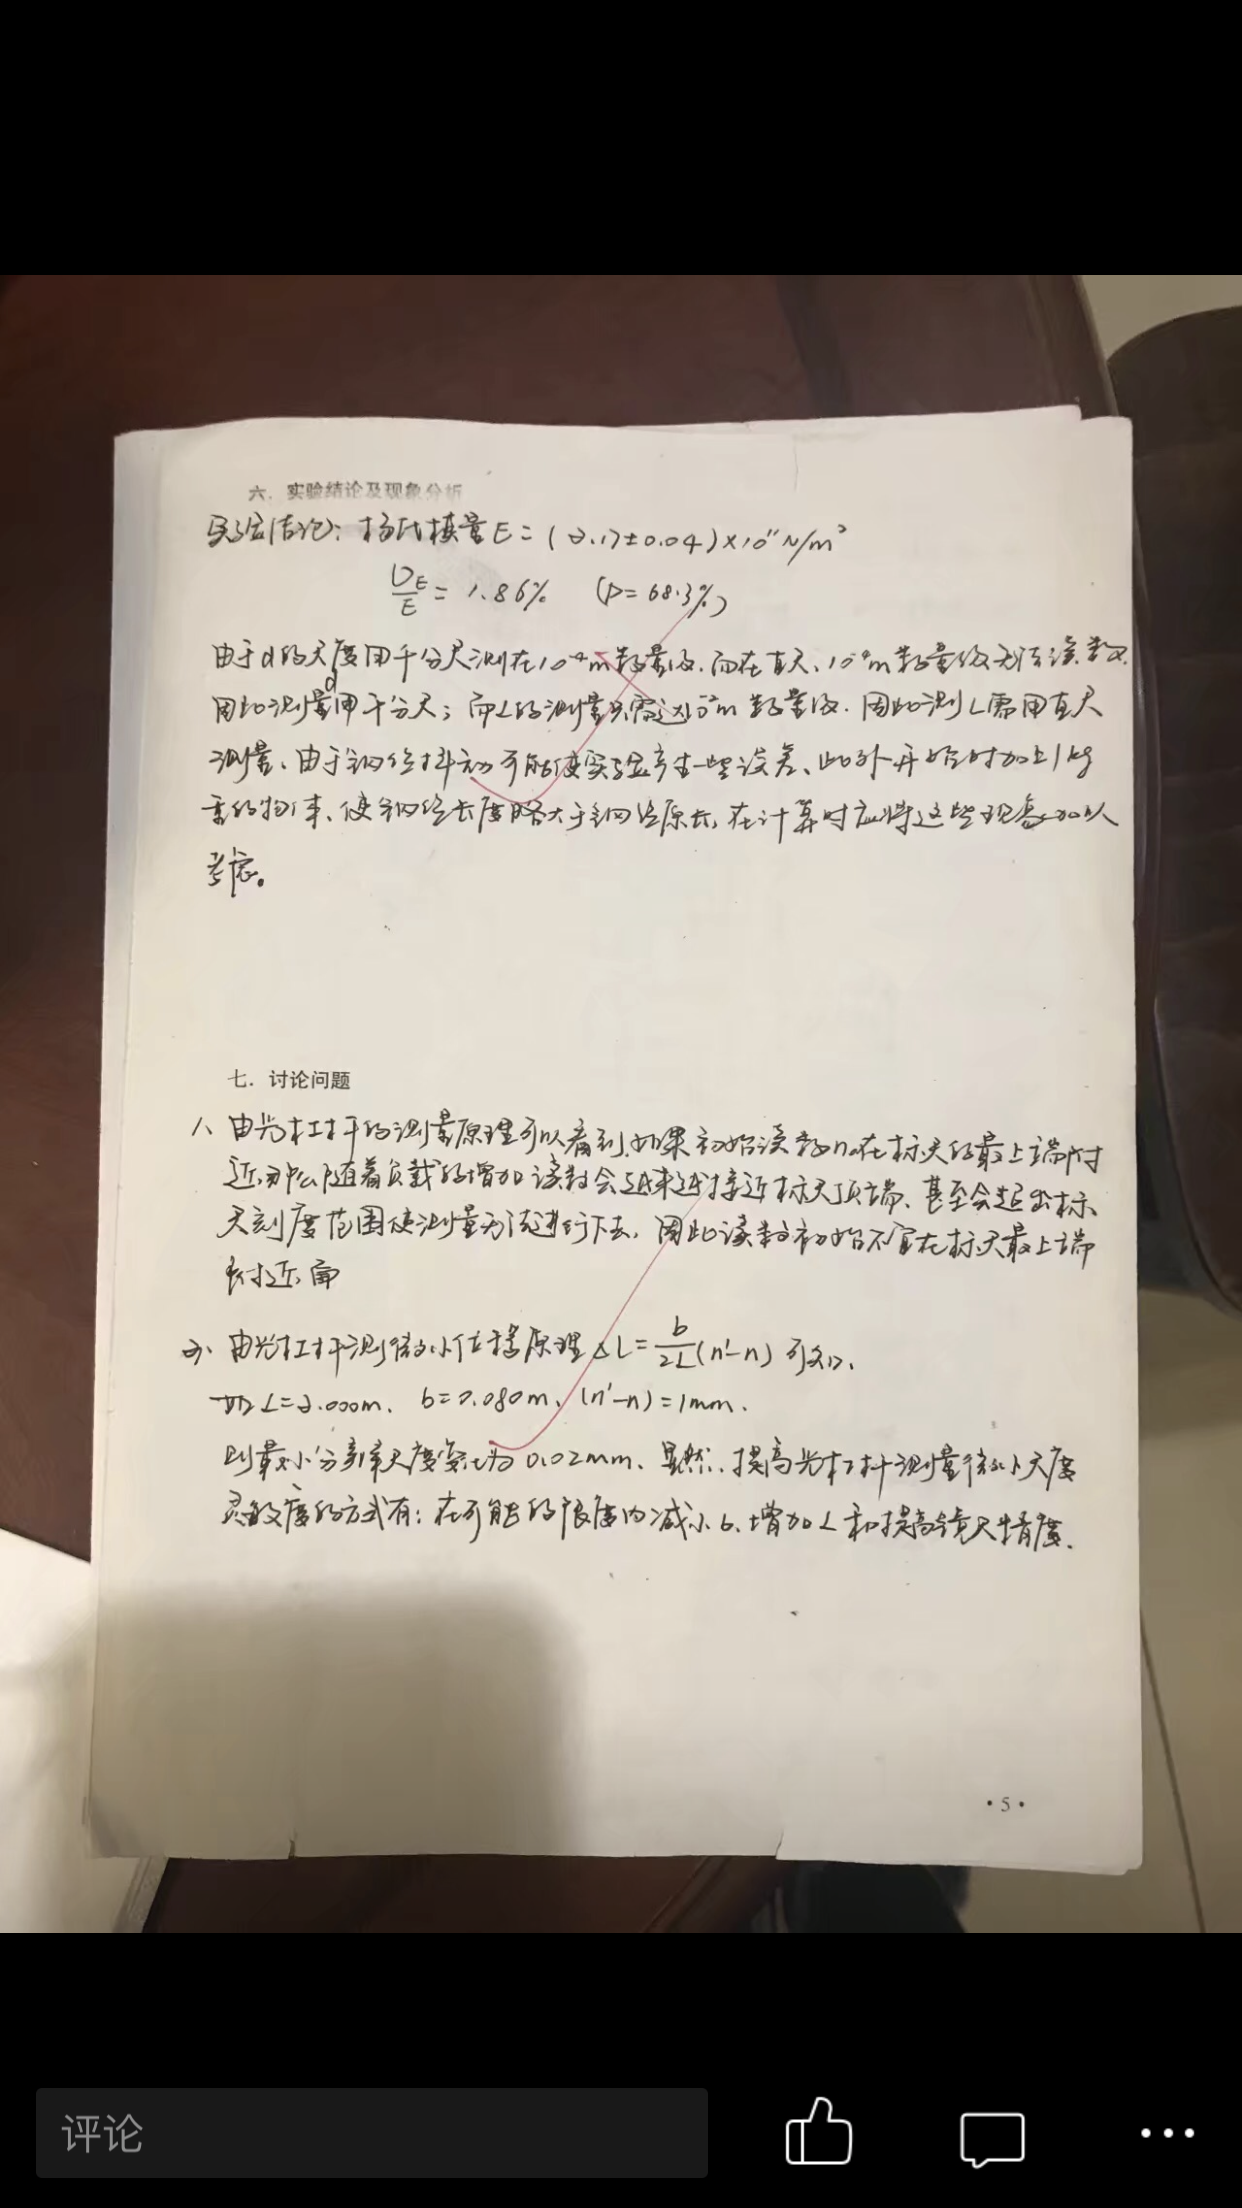 六. 实验结论及现象分析
实验结论: 杨氏模量E=(2.17±0.04)×10¹¹N/m²
U_E/E = 1.86% (P=68.3%)
由于d的长度用千分尺测在10⁻⁴m数量级.而在直尺、10⁻⁴m数量级无法读数.
因此测量d用千分尺;而L的测量只需达10⁻²m数量级.因此测L需用直尺
测量、由于钢丝抖动可能使实验产生一些误差、此外开始时加上1kg
重的物体、使钢丝长度略大于钢丝原长,在计算时应将这些现象加以
考虑。
七. 讨论问题
1、由光杠杆的测量原理可以看到,如果初始读数n₀在标尺的最上端附
近,那么随着负载的增加读数会越来越接近标尺顶端、甚至会超出标
尺刻度范围使测量无法进行下去,因此读数初始不宜在标尺最上端
附近
2、由光杠杆测微小位移原理 ΔL=b/2L(n'-n) 可知,
如L=2.000m、b=0.080m、(n'-n)=1mm.
则最小分辨率长度变化为0.02mm、显然、提高光杠杆测量微小长度
灵敏度的方式有:在可能的限度内减小b、增加L和提高镜尺精度.
·5·
评论